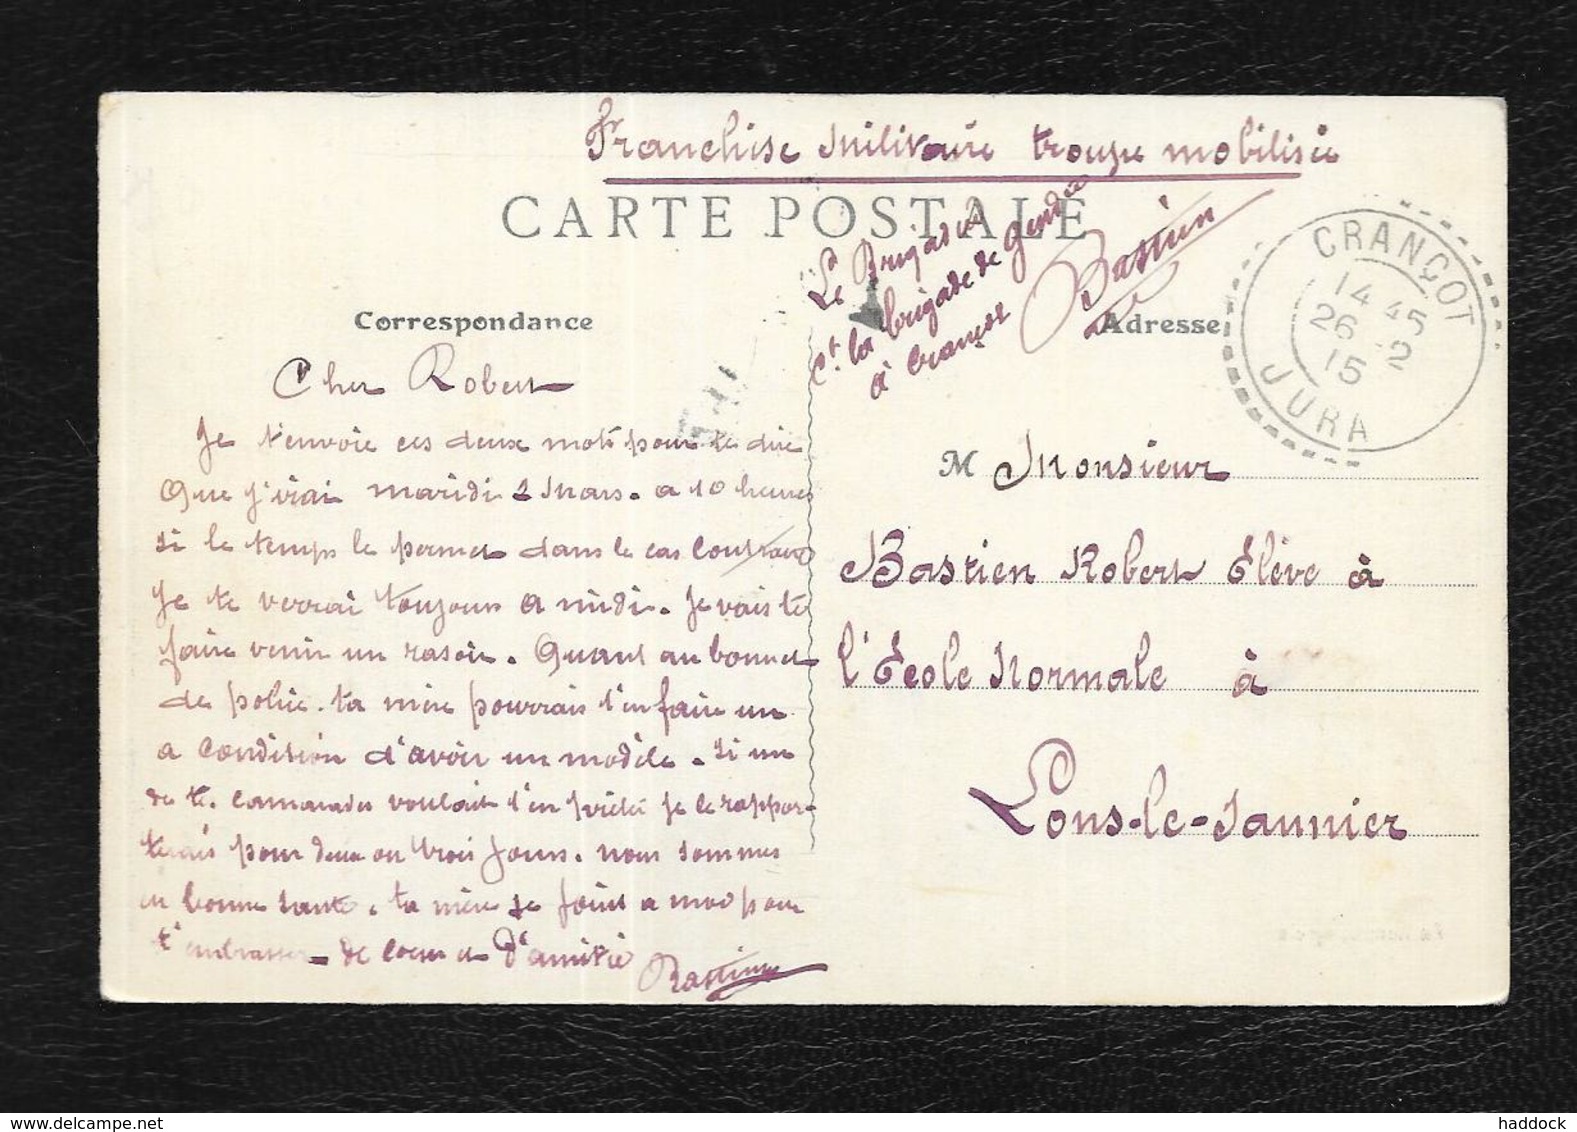 Franchise Militaire troupe mobilisée
CARTE POSTALE
Le Brigadier
Ct la brigade de Gendie
à Crançot
Bastien
CRANÇOT
14 45
26 2
15
JURA
Correspondance
Adresse
Cher Robert
Je t'envoie ces deux mots pour te dire
Que j'irai mardi 2 Mars. a 10 heures
si le temps le permet dans le cas contraire
Je te verrai toujours a midi. Je vais te
faire venir un rasoir. Quant au bonnet
de police. ta mère pourrait t'en faire un
a condition d'avoir un modèle. Si un
de te. camarades voulait t'en prêter je le rappor-
terais pour deux ou trois jours. nous sommes
en bonne santé. ta mère se joint a moi pour
t'embrasser de coeur et d'amitié
Bastien
M Monsieur
Bastien Robert Elève à
l'École Normale à
Lons-le-Saunier
haddock